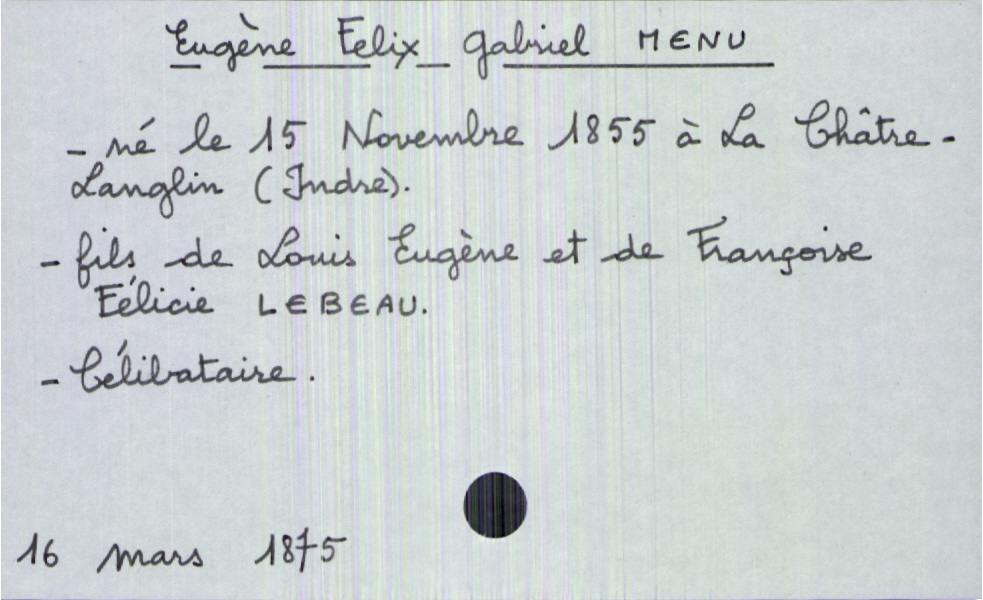 Eugène Felix Gabriel MENU
- né le 15 Novembre 1855 à La Châtre-
Langlin (Indre).
- fils de Louis Eugène et de Françoise
Félicie LEBEAU.
- Célibataire.
16 mars 1875